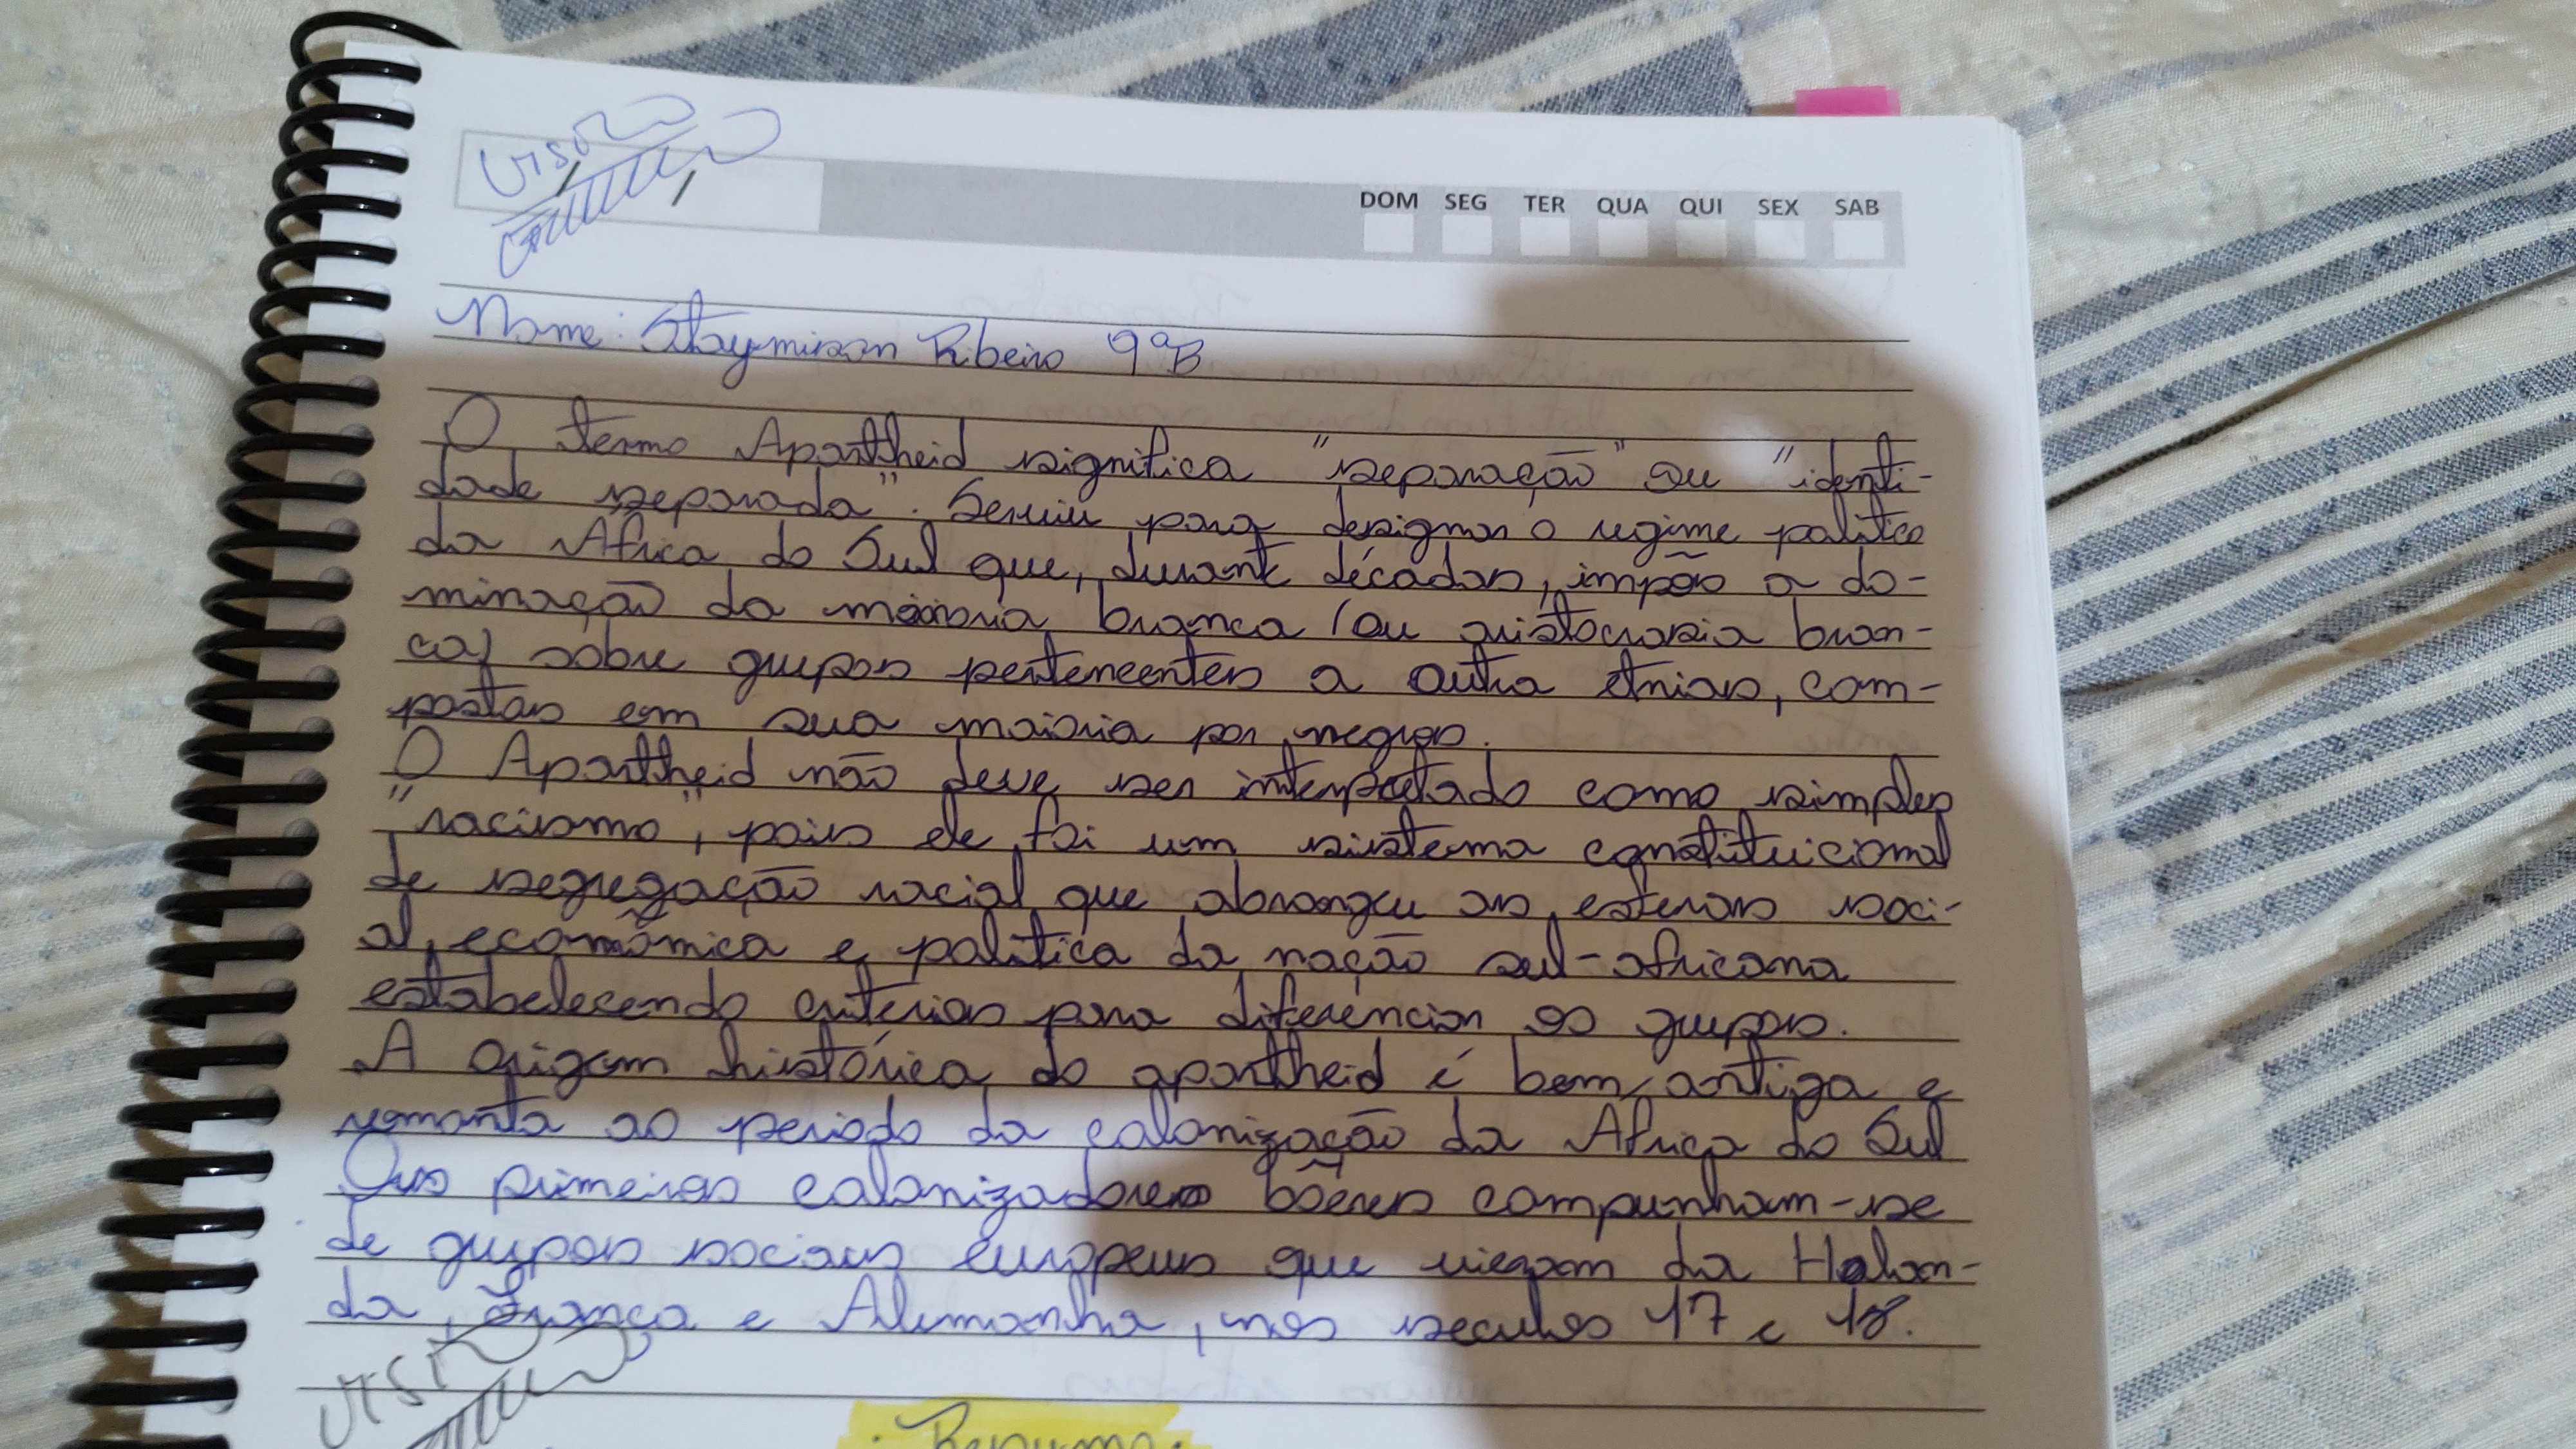 Visto
DOM SEG TER QUA QUI SEX SAB
Nome: Staymison Ribeiro 9ºB
O termo Apartheid significa "separação" ou "identi-
dade separada". Serviu para designar o regime politico
da África do Sul que, durante décadas, impôs a do-
minação da maioria branca (ou aristocrasia bran-
ca) sobre grupos pertencentes a outra etnias, com-
postas em sua maioria por negros.
O Apartheid não deve ser interpretado como simples
"racismo", pois ele foi um sistema constituicional
de segregação racial que abrangeu as esferas soci-
al, econômica e politica da nação sul-africana
estabelecendo critérios para diferenciar os grupos.
A origem histórica do apartheid é bem antiga e
remonta ao periodo da colonização da África do Sul
Ous primeiros colonizadores bôeres compunham-se
de grupos sociais europeus que vieram da Holan-
da, França e Alemanha, nos seculos 17 e 18.
Visto
Resumo